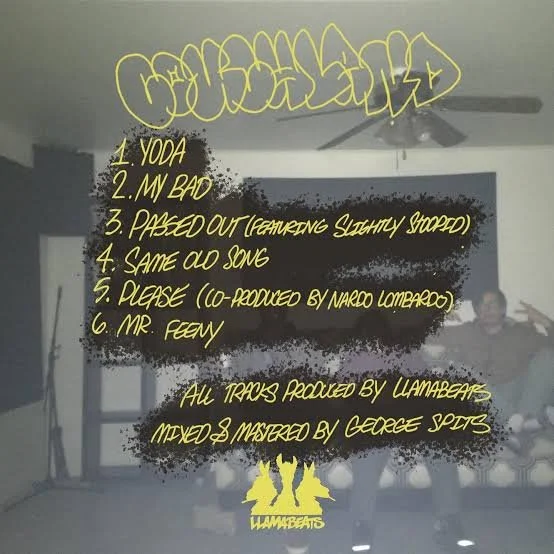 COUCHLAND
1. YODA
2. MY BAD
3. PASSED OUT (FEATURING SLIGHTLY STOOPID)
4. SAME OLD SONG
5. PLEASE (CO-PRODUCED BY NARDO LOMBARDO)
6. MR. FEENY
ALL TRACKS PRODUCED BY LLAMABEATS
MIXED & MASTERED BY GEORGE SPITS
LLAMABEATS